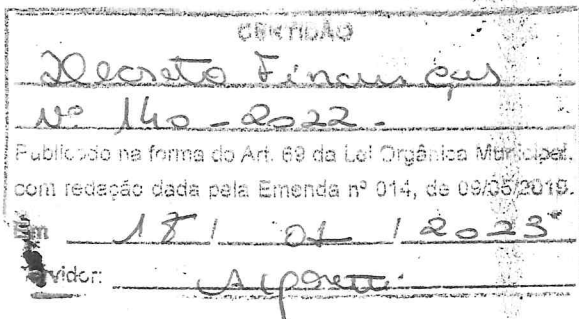 CERTIDÃO
Decreto Finanças
Nº 140 - 2022 -
Publicado na forma do Art. 69 da Lei Orgânica Municipal,
com redação dada pela Emenda nº 014, de 09/05/2019.
Em 18 / 01 / 2023
Servidor: